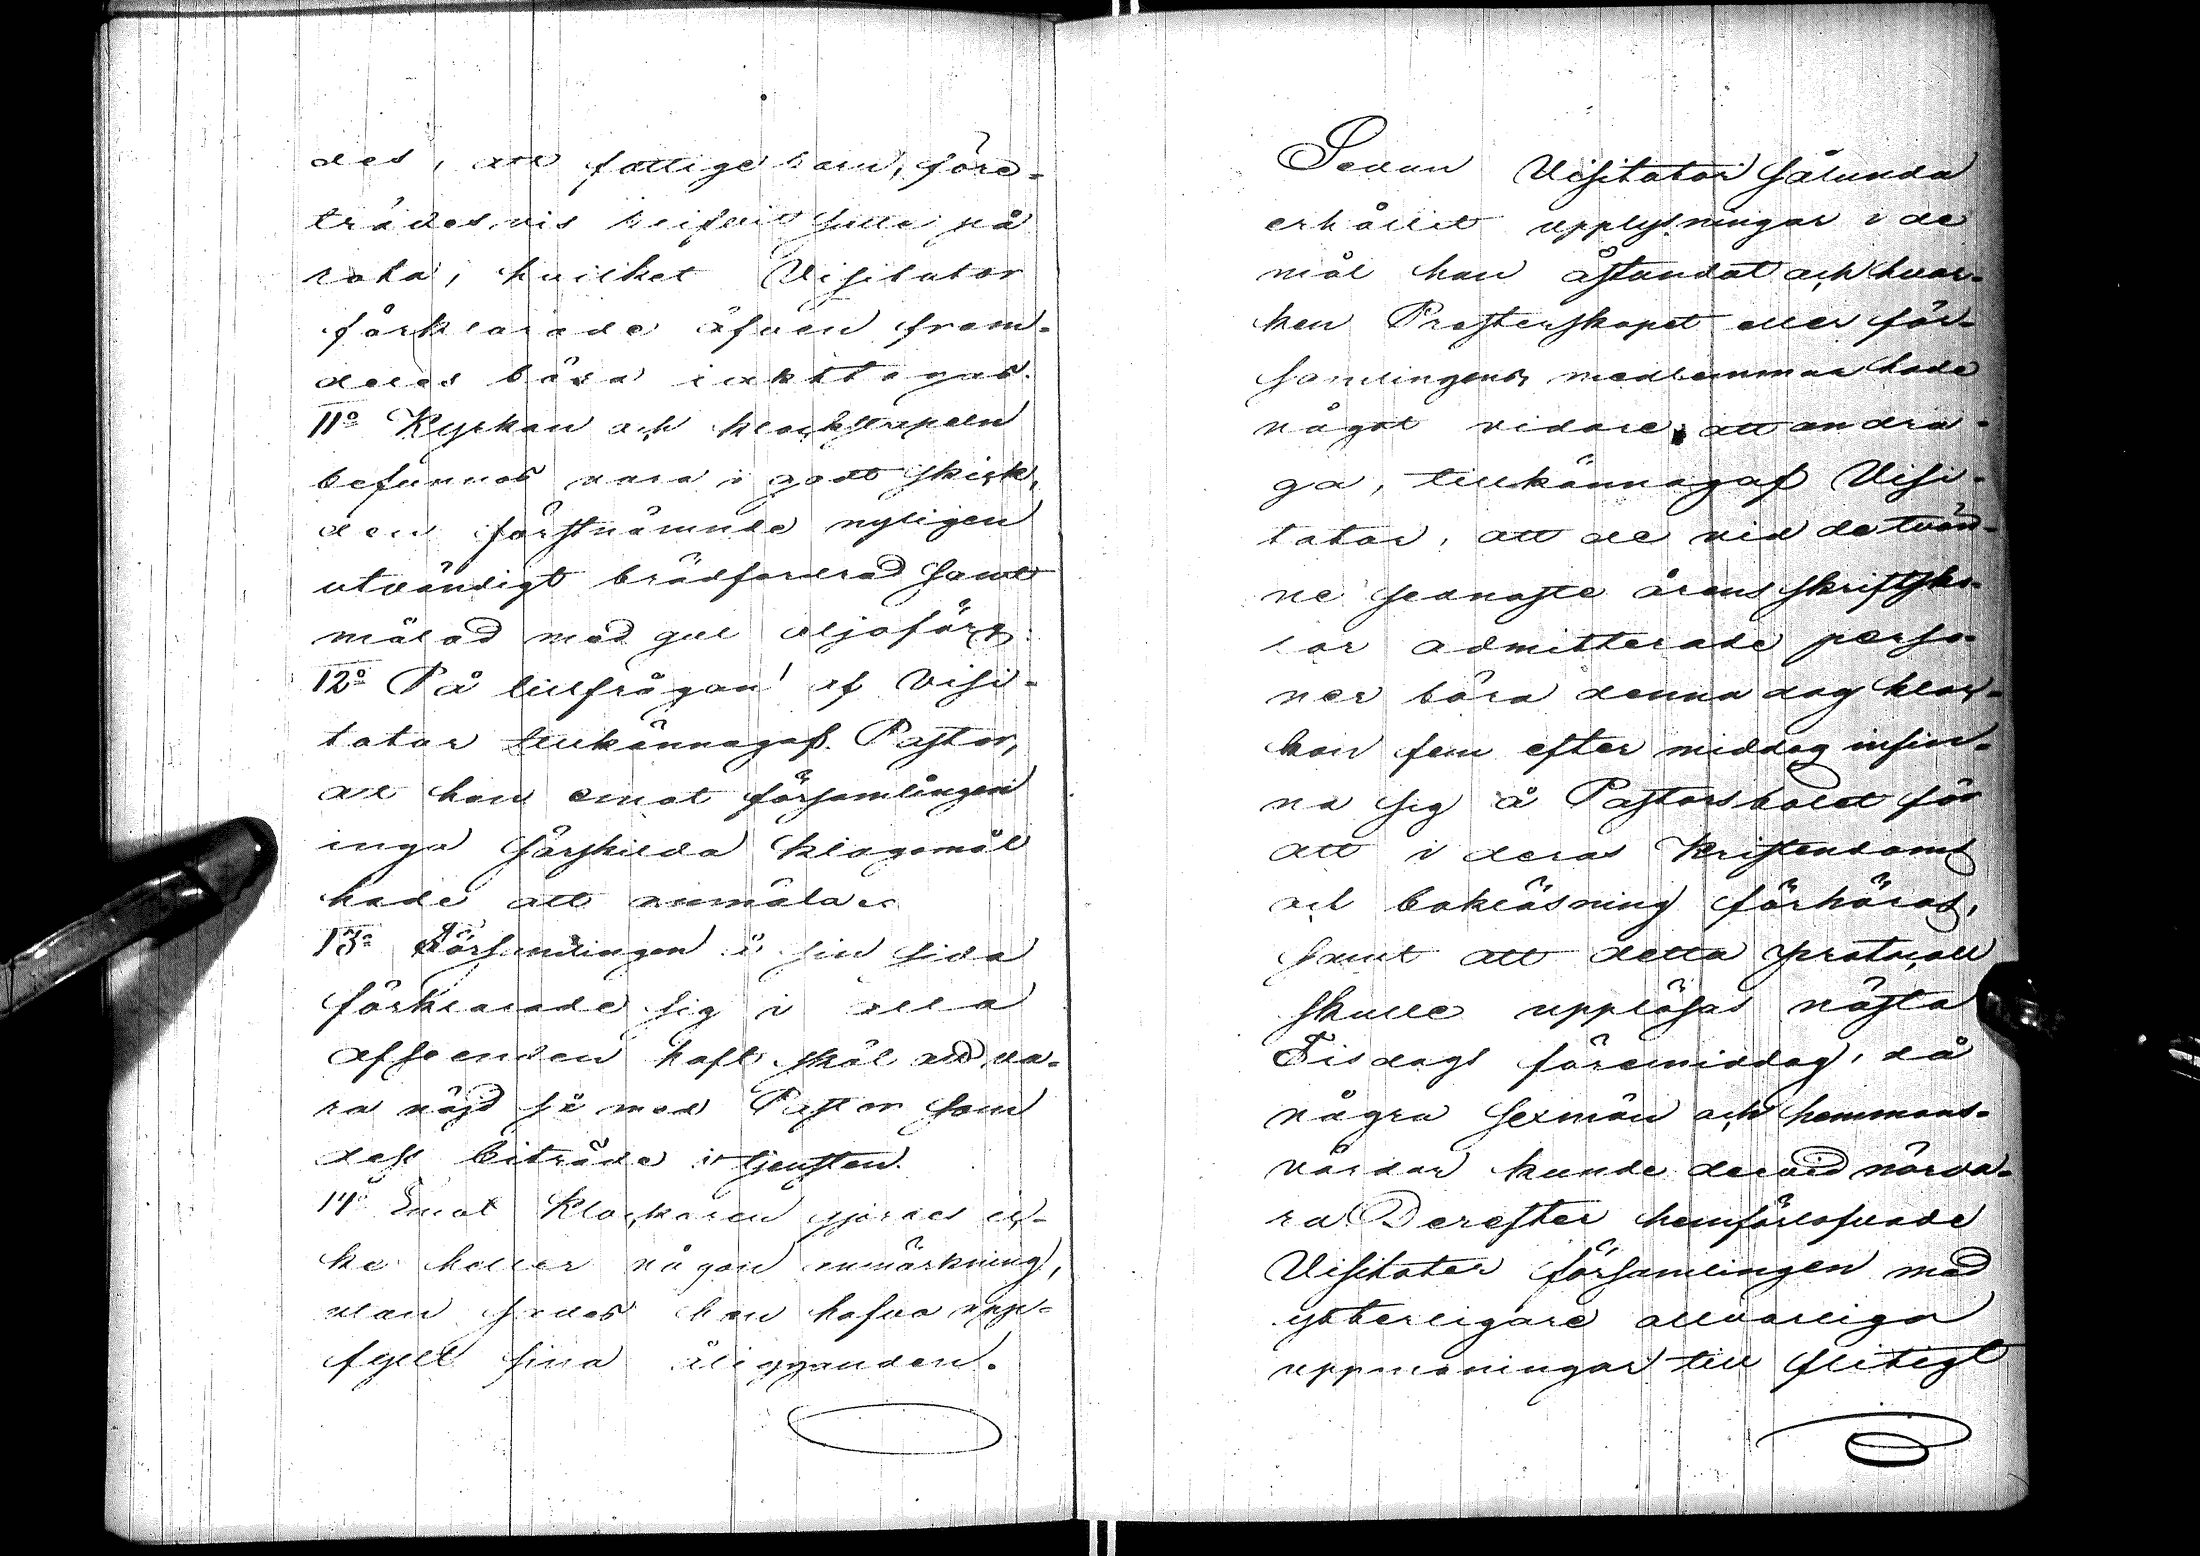 des, att fattige barn, före-
trädesvis blifvit satte på
rota, hvilket Visitator
förklarade äfven fram-
deles böra iakttagas.
11o Kyrkan och klockstapeln
befunnos vara i godt skick,
den förstnämnde nyligen
utvändigt brädfordrad samt
målad med gul oljefärg.
12o På tillfrågan af Visi-
tator tillkännagaf Pastor,
att han emot församlingen
inga särskilda klagomål
hade att anmäla.
13o Församlingen å sin sida
förklarade sig i alla
afseenden haft skäl att va-
ra nöjd så med Pastor som
dess biträde i tjensten.
14o Emot Klockaren gjordes ic-
ke heller någon anmärkning,
utan sades han hafva upp-
fyllt sina åligganden.
Sedan Visitator sålunda
erhållit upplysningar i de
mål han åstundat och hvar-
ken Presterskapet eller för-
samlingens medlemmar hade
något vidare att andra-
ga, tillkännagaf Visi-
tator, att de vid de tvän-
ne sednaste årens skriftsko-
lor admitterade perso-
ner böra denna dag kloc-
kan fem efter middag infin-
na sig å Pastorsbolet för
att i deras Kristendoms
och bokläsning förhöras,
samt att detta protocoll
skulle uppläsas nästa
Tisdags förmiddag, då
några sexmän och hemmans-
värdar kunde dervid närva-
ra. Derefter hemförlofvade
Visitator församlingen med
ytterligare allvarliga
uppmaningar till flitigt